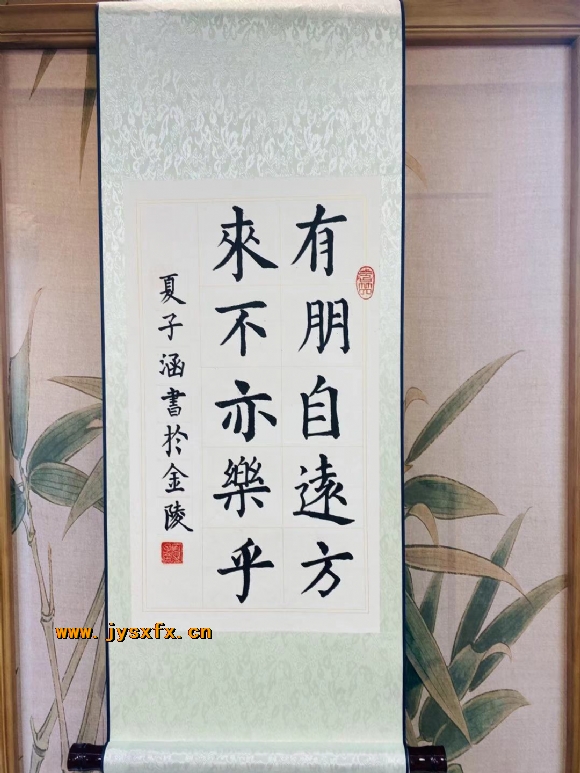 有朋自遠方
來不亦樂乎
夏子涵書於金陵
www.jysxfx.cn